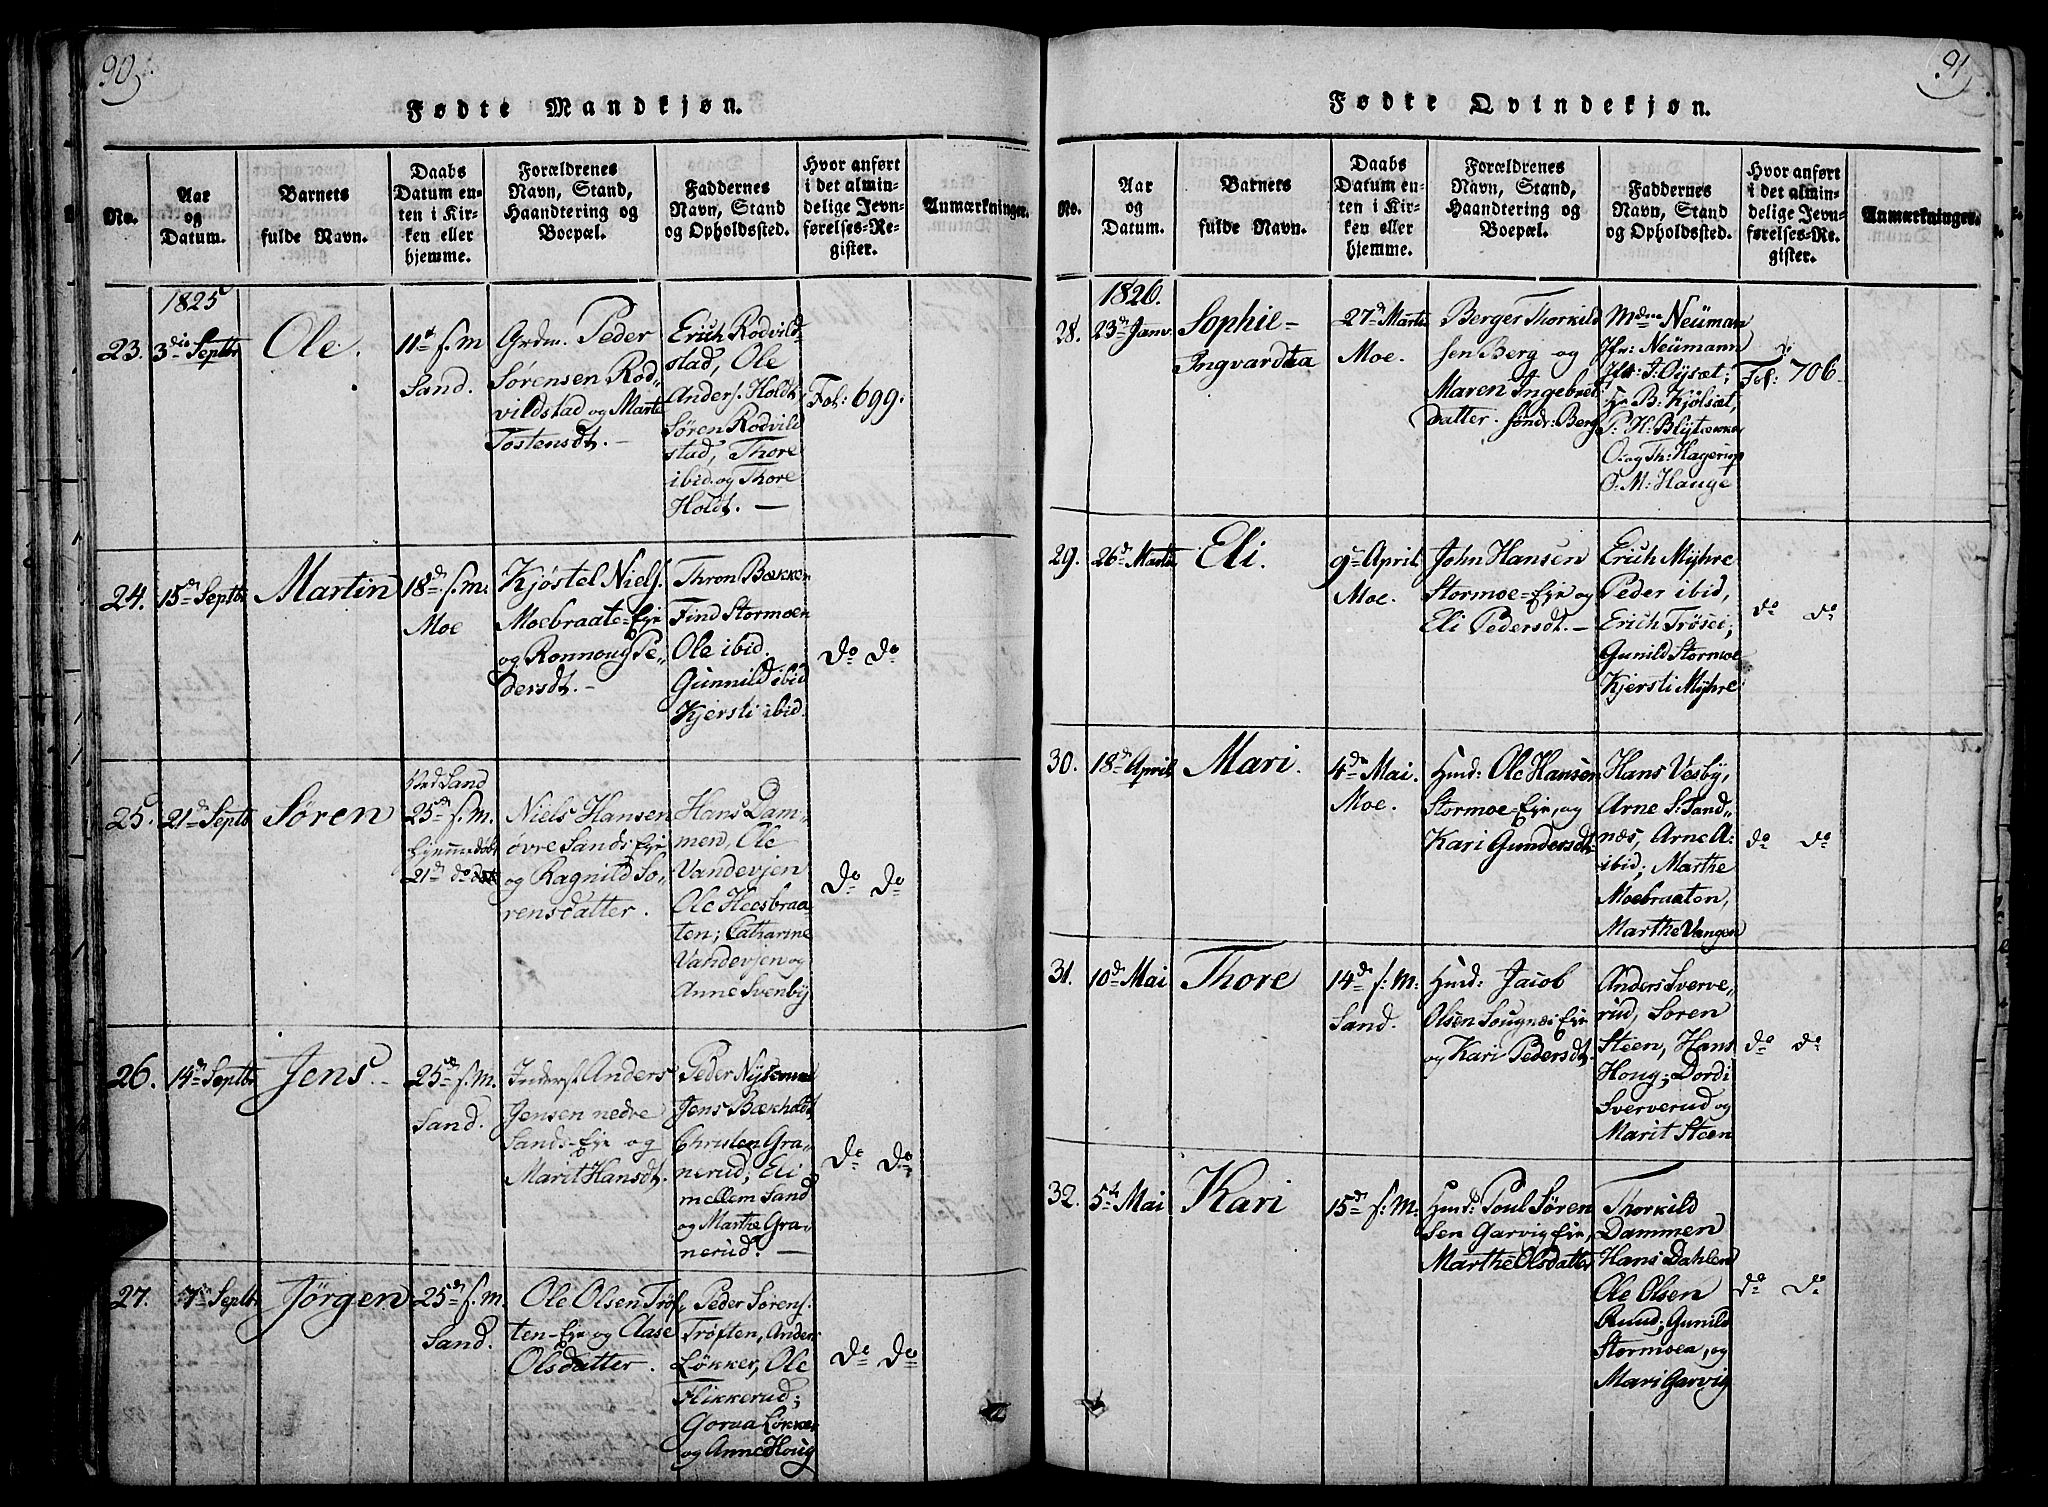 90.
Fødte Mandkjøn.
No.
Aar
og
Datum.
Barnets
fulde Navn.
Daabs
Datum en-
ten i Kir-
ken eller
hjemme.
Forældrenes
Navn, Stand,
Haandtering og
Boepæl.
Faddernes
Navn, Stand
og Opholdssted.
Hvor anført
i det almin-
delige Jevn-
førelses-Re-
gister.
Anmærkninger.
1825
23.
3die Septbr
Ole.
11te f.m
Sand.
Grdm. Peder
Sørensen Rod„
vildstad og Marte
Tostensdt. –
Erich Rodvild-
stad, Ole
Anders. Holdt
Søren Rodvild
stad, Thore
ibid. og Thore
Holdt. –
Fol: 699.
24.
15de Septbr
Martin
18de f.m.
Moe
Kjøstel Niels.
Moebraate-Eje
og Ronnoug Pe„
dersdt. –
Thron Bække
Find Stormoen
Ole ibid.
Gunnild ibid
Kjersti ibid.
do do
25.
21de Septb
Søren
Ved Sand
25de f.m.
hjemmedøbt
21de do
Niels Hansen
øvre Sands Eje
og Ragnild So„
rensdatter.
Hans Dam-
men, Ole
Vandevjen
Ole Heesbraa-
ten; Catharine
Vandevjen og
Anne Svenby
do do
26.
14de Septbr
Jens. –
25de f.m.
Sand.
Inderst Anders
Jensen nedre
Sands-Eje og
Marit Hansdt.
Peder
Jens Bækholdt
Christen Gra„
nerud; Eli
mellem Sand
og Marthe Gra„
nerud. –
do do
27.
7de Septbr
Jørgen
25de f.m.
Sand.
Ole Olsen Trøf„
ten-Eje og Aase
Olsdatter.
Peder Sørens.
Trøften, Anders
Løkker, Ole
Flikkerud;
Gorua Løkker
og Anne Houg
do do
91
Fødte Qvindekjøn.
No.
Aar
og
Datum.
Barnets
fulde Navn.
Daabs
Datum en-
ten i Kir-
ken eller
hjemme.
Forældrenes
Navn, Stand,
Haandtering og
Boepæl.
Faddernes
Navn, Stand
og Opholdssted.
Hvor anført
i det almin-
delige Jevn-
førelses-Re-
gister.
Anmærkninger.
1826.
28.
23de Janv.
Sophie–
Ingvardta
27de Martii
Moe.
Berger Thorkild
sen Berg og
Maren Ingebret
datter. søndr: Berg
Mdme Neuman
Jfr: Neumann
Oÿsæt;
Hr B. Kjølsæt,
P: H: Blÿtækker
O. og Th: Hagerup
O. M: Hauge
Fol: 706.
29.
26de Martii
Eli.
9de April
Moe.
John Hansen
Stormoe-Eje og
Eli Pedersdt. –
Erich Mÿhre
Peder ibid,
Erich Trøsei;
Gunild Stormoe
Kjersti Mÿhre
do do
30.
18de April
Mari.
4de Mai.
Moe.
Husd: Ole Hansen
Stormoe-Eje, og
Kari Gundersdt.
Hans Vesby,
Arne S: Sand„
næs, Arne A:
ibid; Marthe
Moebraaten,
Marthe Vangen
do do
31.
10de Mai
Thore
14de f:M:
Sand.
Husd: Jacob
Olsen Sougnæs Eje
og Kari Pedersdt.
Anders Sverve„
rud, Søren
Steen, Hans
Houg; Dordi
Sververud og
Marit Steen
do do
32.
5te Mai
Kari
15de f:M:
Husd: Poul Søren
sen Garvig Eje,
Marthe Olsdatter
Thorkild
Dammen
Hans Dahlen
Ole Olsen
Ruud; Gunild
Stormoea, og
Mari Garvig
do do